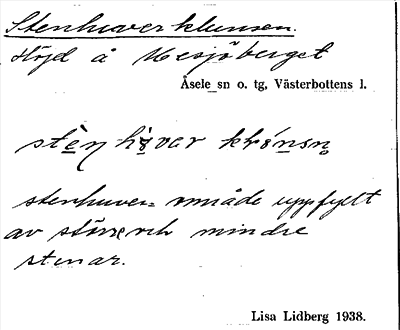 Stenhuverklumsen.
Höjd å Mesjöberget
Åsele sn o. tg, Västerbottens l.
stenhuver = område uppfyllt
av större och mindre
stenar.
Lisa Lidberg 1938.